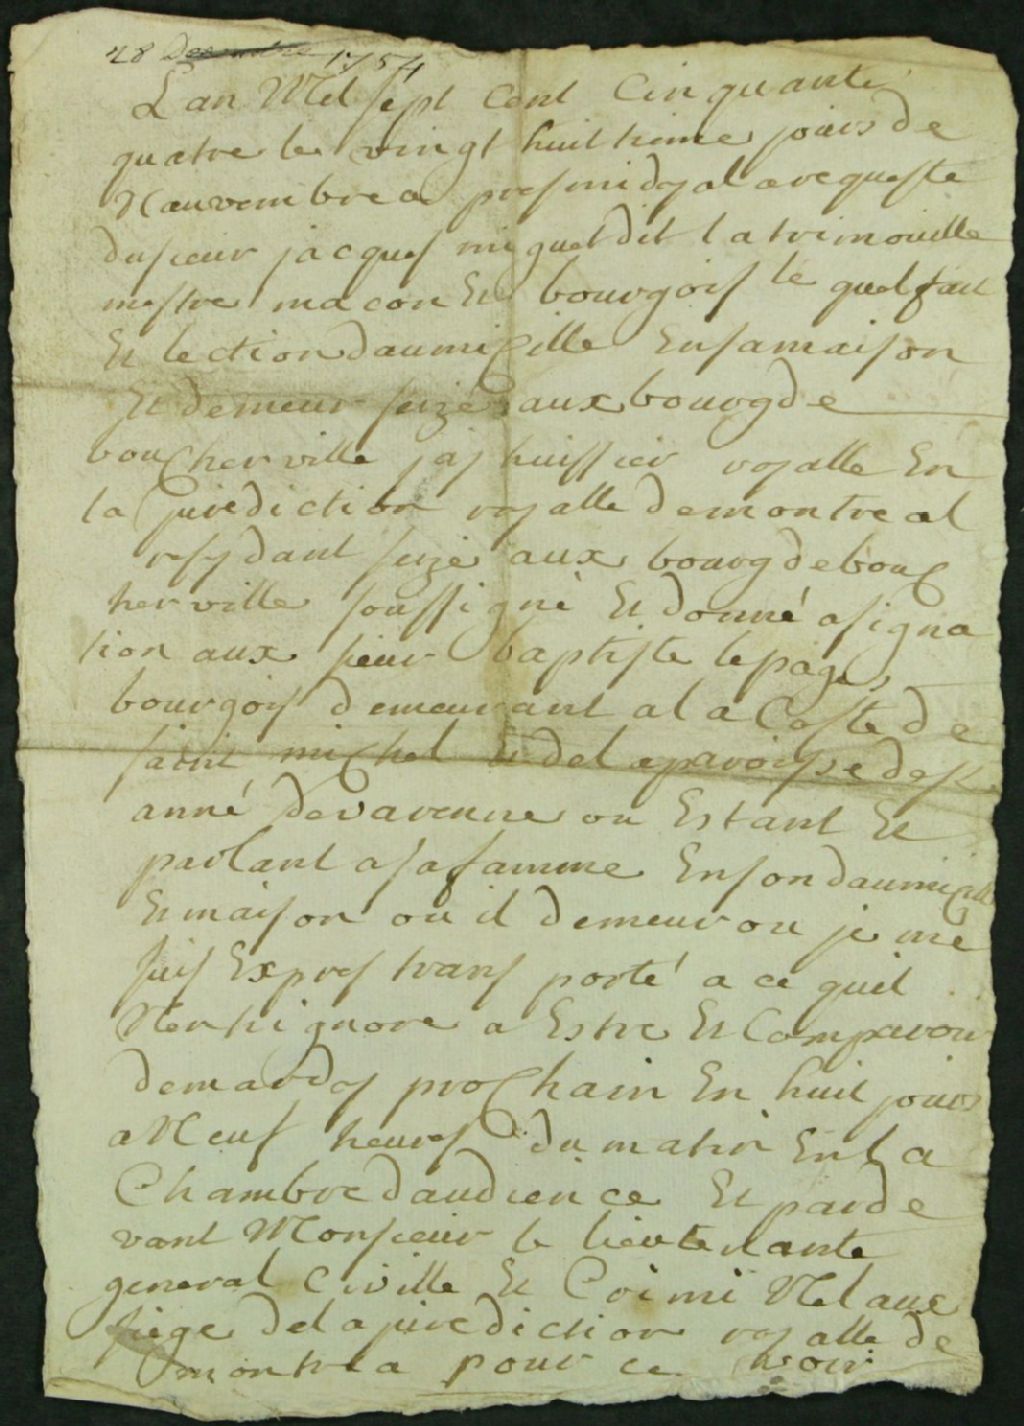 28 Decembre 1754
Lan Mel sept Cent Cinquante
quatre le vingt huittieme jours de
Nauvembre a presmidy al arequeste
dusieur jacques miguet dit latrimouille
mestre macon Et bourgois le quel fait
Et lection daumisille Ensamaison
Et demeur seize aux bourgde
boucherville jay huissier royalle En
la juridiction royalle demontreal
resydant seize aux bourg debouc
herville soussigné Et donné asigna
tion aux sieur baptiste lepage
bourgois demeurant al a Coste de
saint michel Et del eparoisse dest
anné devarenne ou Estant Et
parlant asafamme Ensondaumicille
Et maison ou il demeur ou je me
suis Expres trans porté a ce quil
Nenhignore a Estre Et Comparoir
demardy prochain En huit jours
a Neuf heures du matin En la
Chambre daudience Et parde
vant Monsieur le lieutenante
general Civille Et Crimi Nel aux
siege delajurediction royalle de
montrea pour ce voir